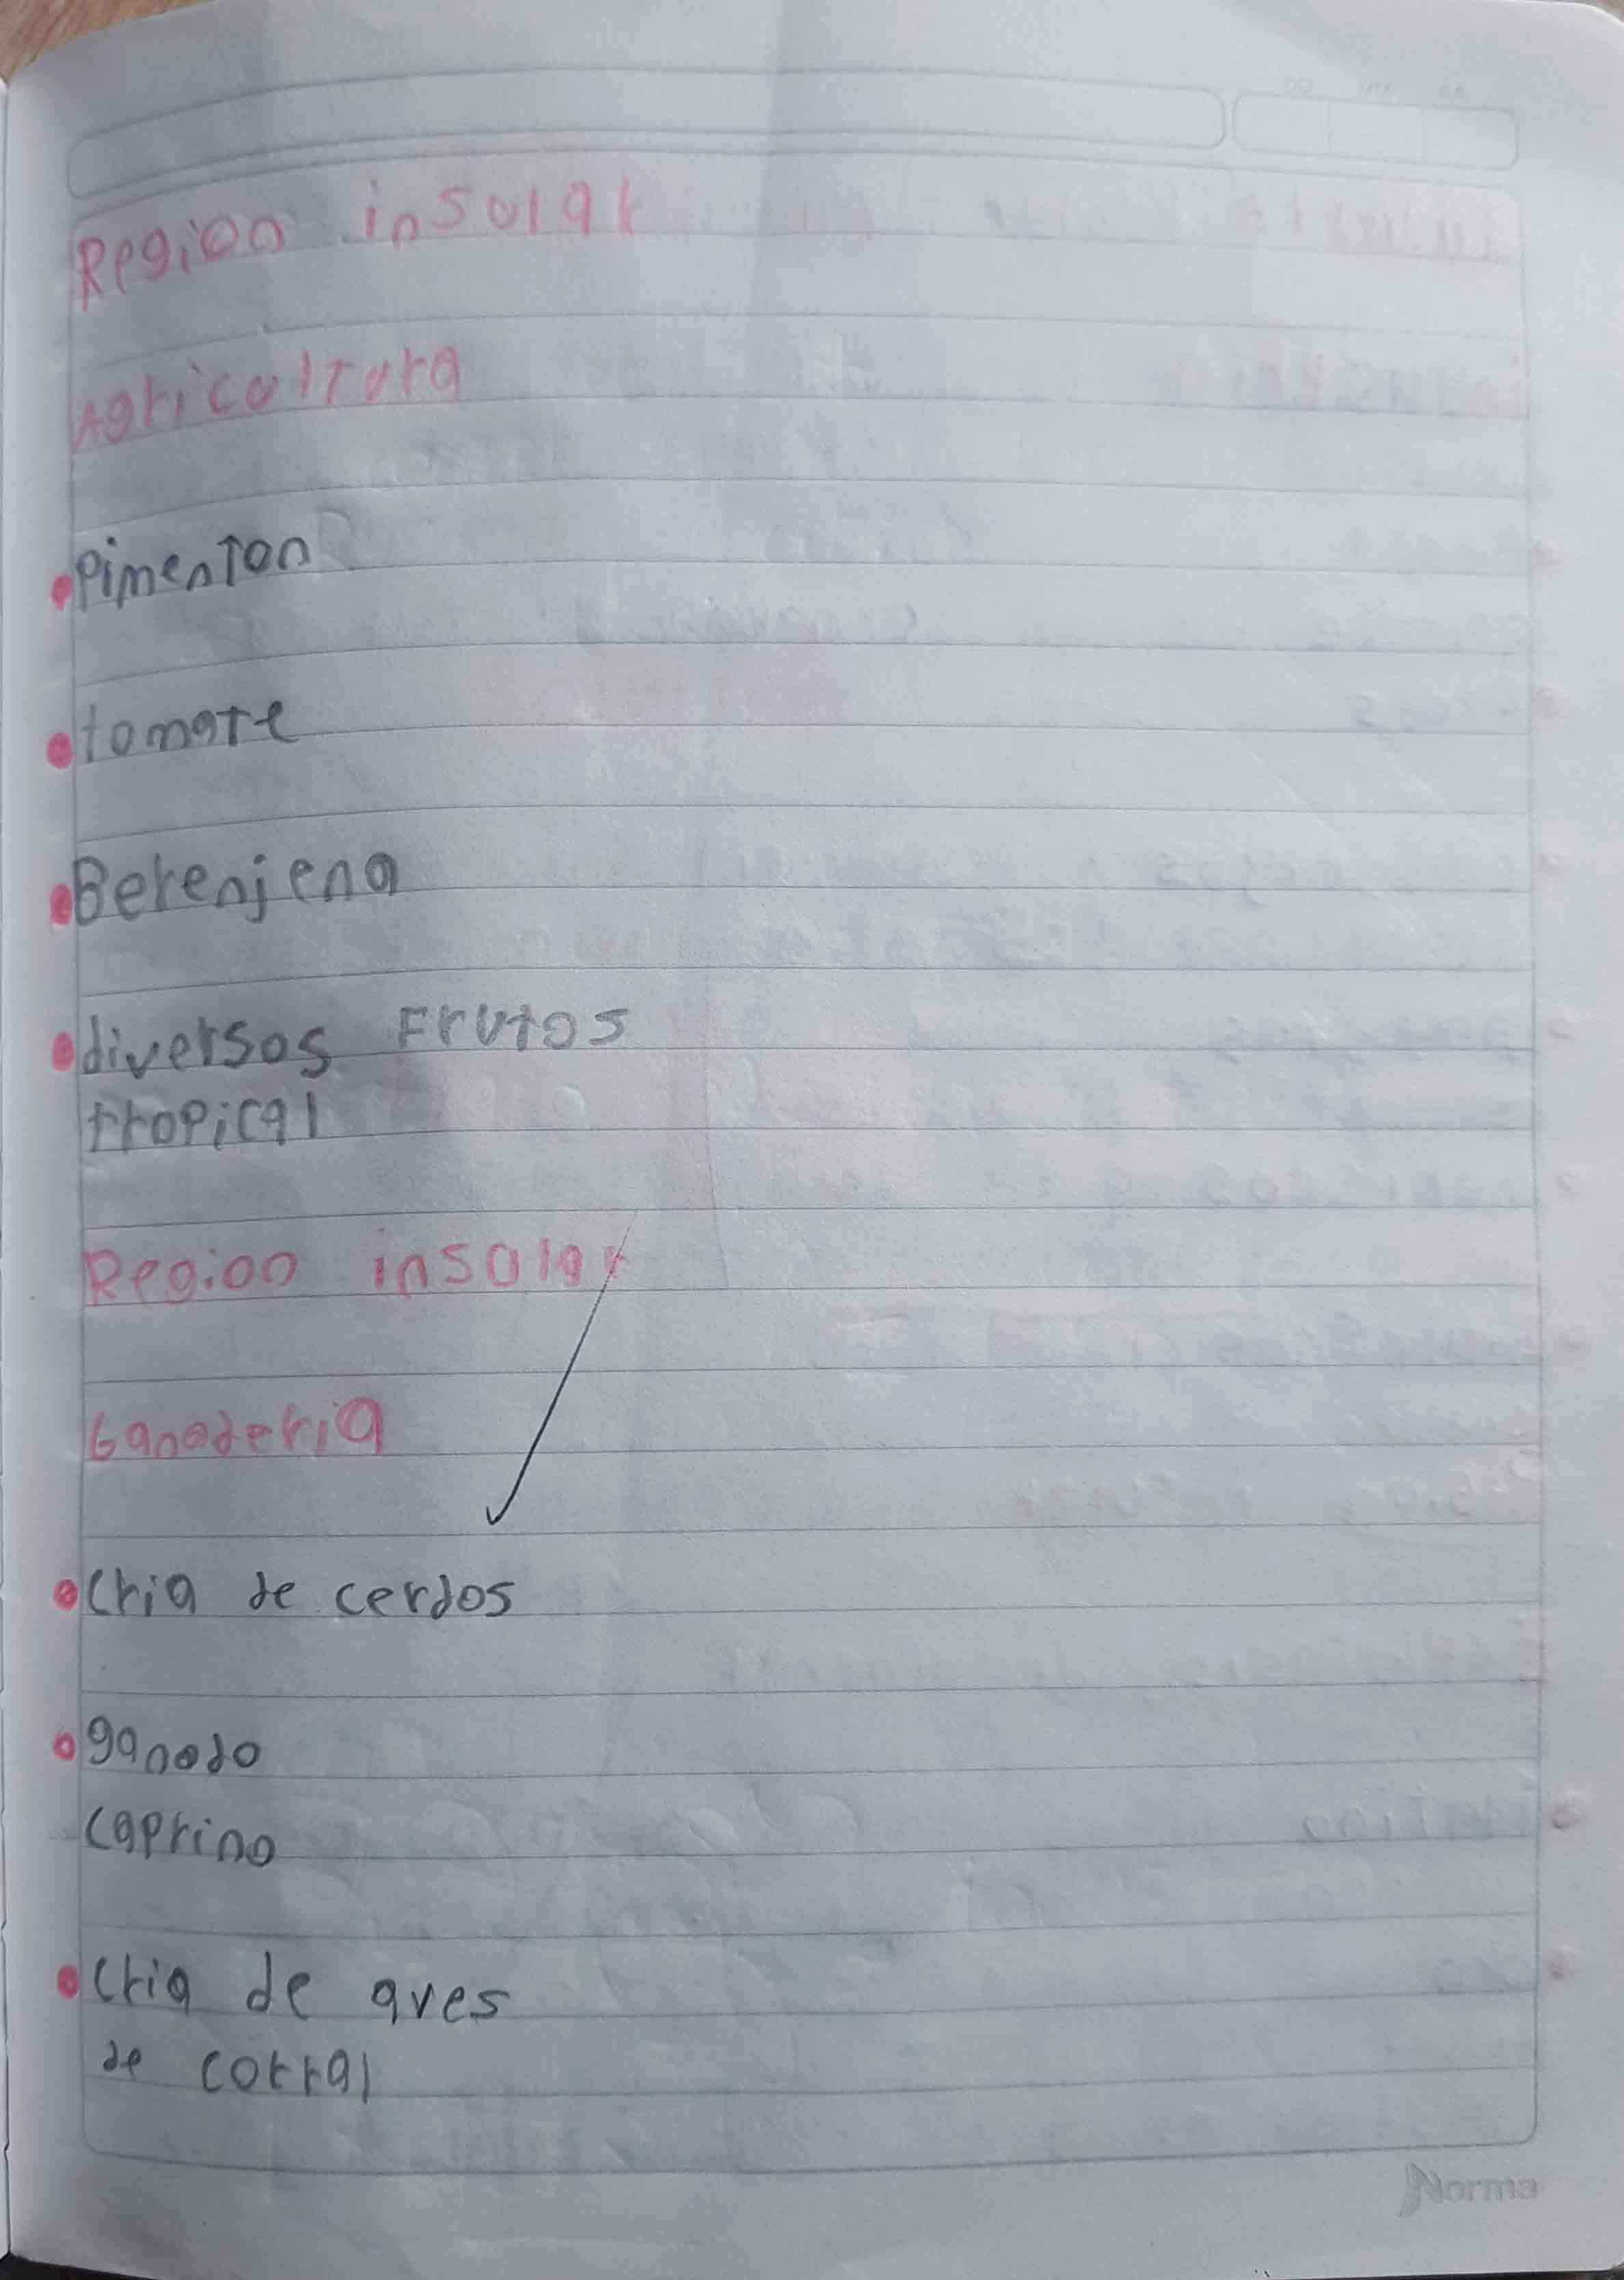 Region insular
Agricultura
Pimenton
tomate
Berenjena
diversos Frutos
tropical
Region insular
Ganaderia
Cria de cerdos
ganado
caprino
Cria de aves
de corral
Norma